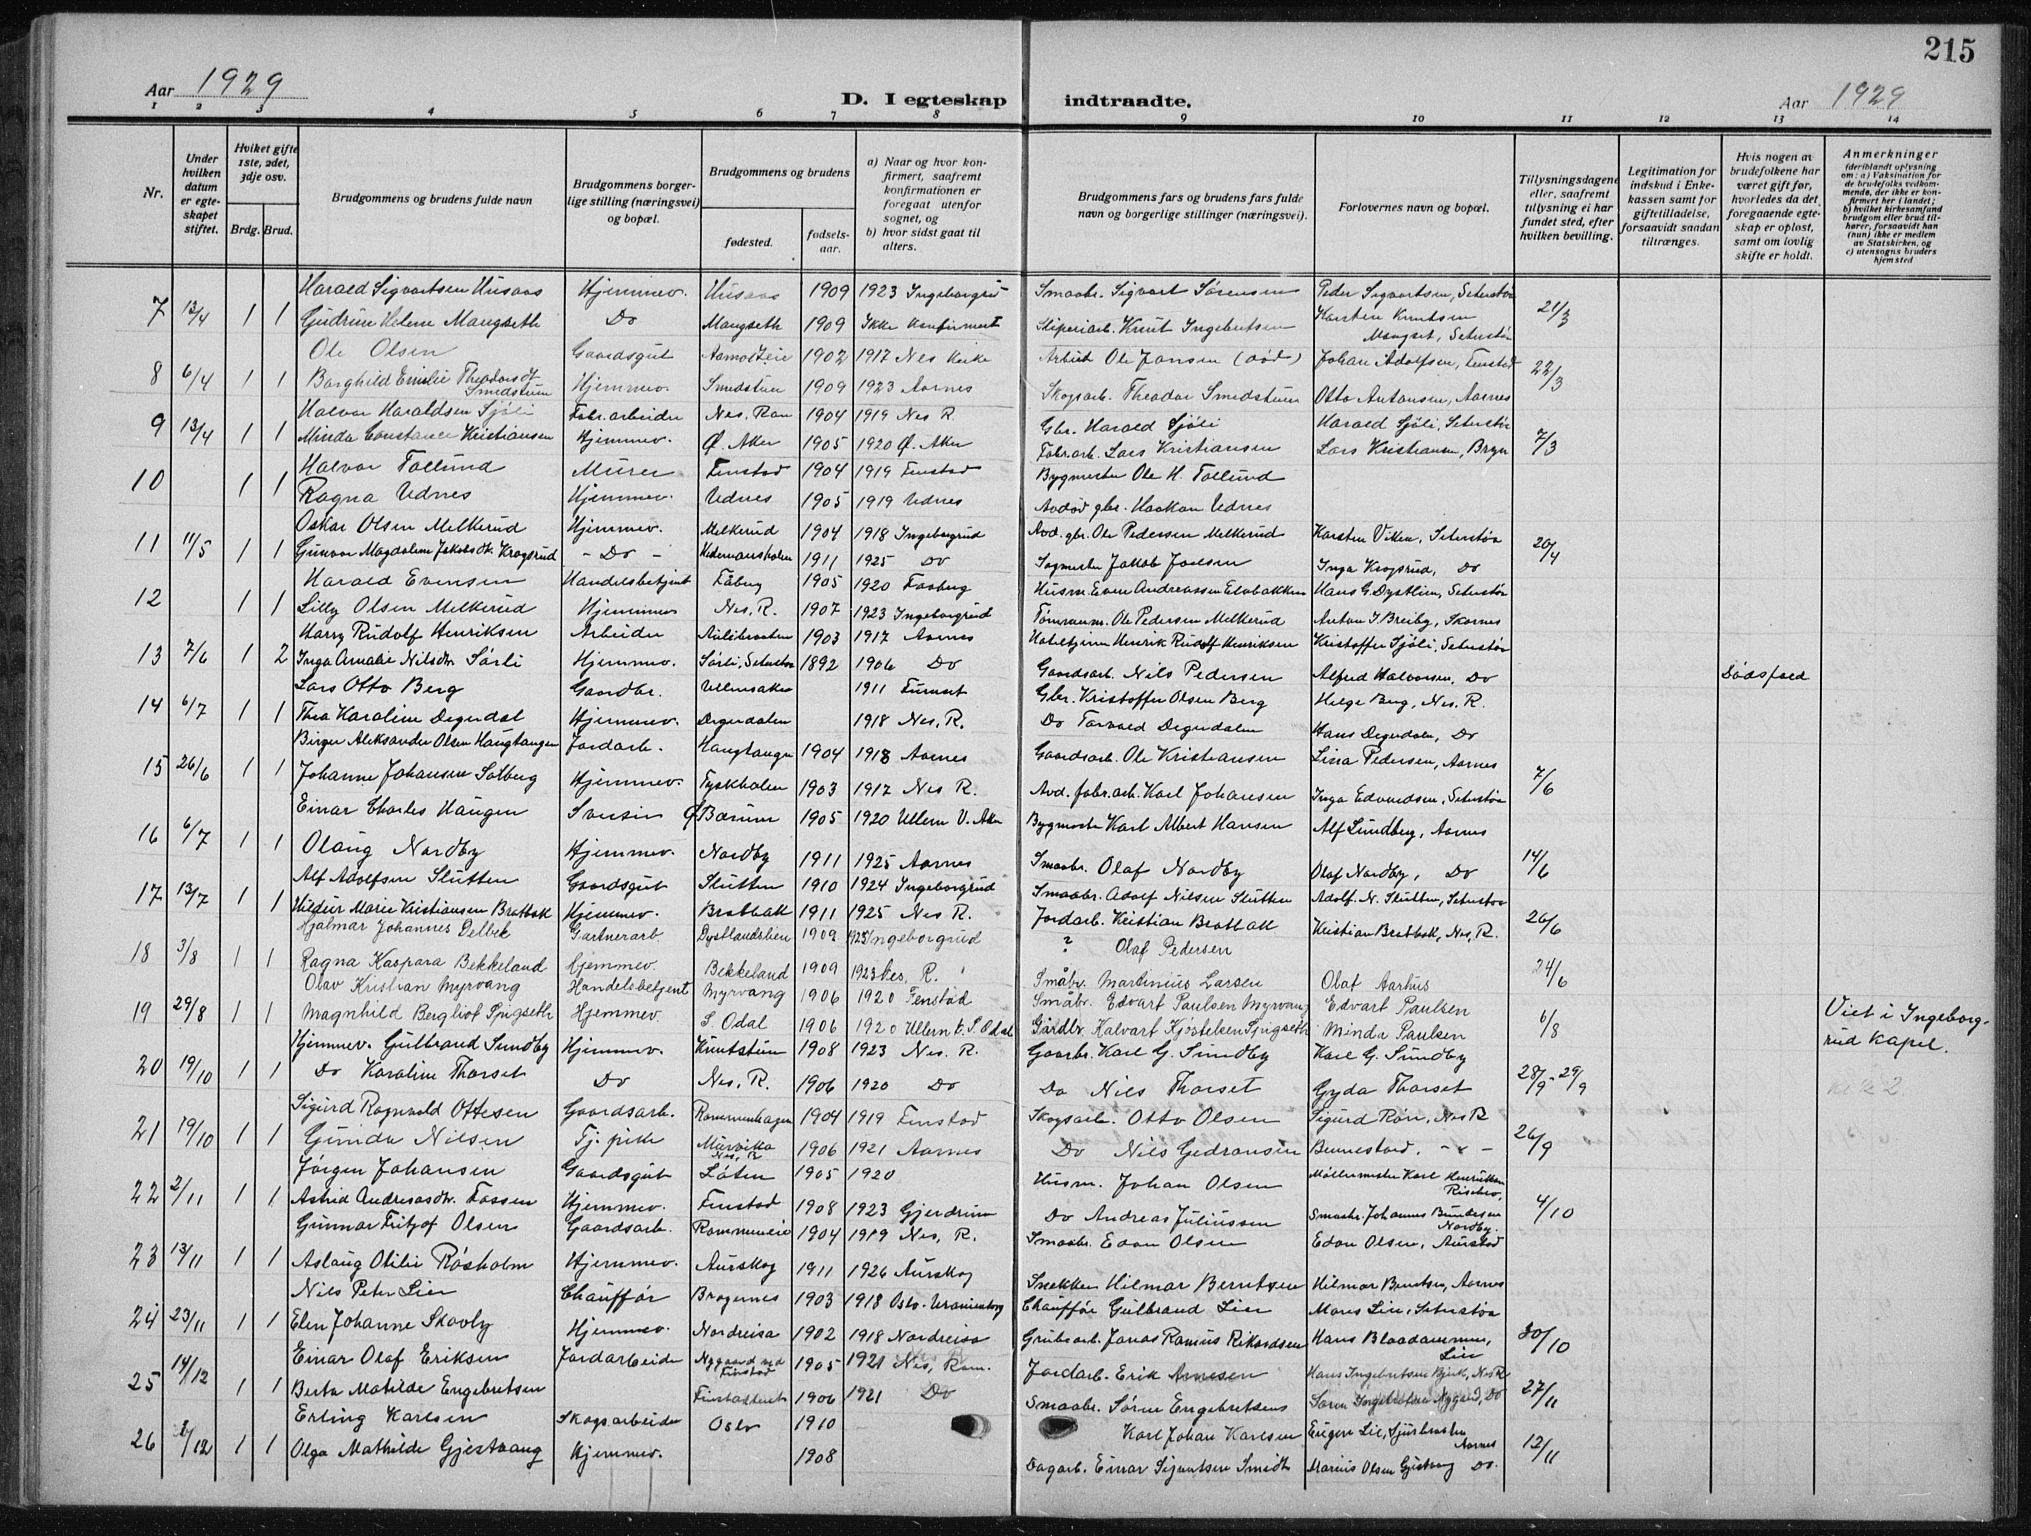 215
Aar 1929
D. I egteskap indtraadte.
Aar 1929
1 2 3 4 5 6 7 8 9 10 11 12 13 14
Nr.
Under hvilken datum er egteskapet stiftet.
Hviket gifte 1ste, 2det, 3dje osv.
Brdg. Brud.
Brudgommens og brudens fulde navn
Brudgommens borgerlige stilling (næringsvei) og bopæl.
Brudgommens og brudens
fødested.
fødselsaar.
a) Naar og hvor konfirmert, saafremt konfirmationen er foregaat utenfor sognet, og
b) hvor sidst gaat til alters.
Brudgommens fars og brudens fars fulde navn og borgerlige stillinger (næringsvei).
Forlovernes navn og bopæl.
Tillysningsdagene eller, saafremt tillysning ei har fundet sted, efter hvilken bevilling.
Legitimation for indskud i Enkekassen samt for giftetilladelse, forsaavidt saadan tiltrænges.
Hvis nogen av brudefolkene har været gift før, hvorledes da det foregaaende egteskap er opløst, samt om lovlig skifte er holdt.
Anmerkninger (deriblandt oplysning om: a) Vaksination for de brudefolks vedkommende, der ikke er konfirmert her i landet; b) hvilket kirkesamfund brudgom eller brud tilhører, forsaavidt han (hun) ikke er medlem av Statskirken, og c) utensogns bruders hjemsted
Harald Sigvartsen Husaas Hjemmev. Husaas 1909 1923 Ingeborgrud Smaabr. Sigvart Sørensen Peder Sigvartsen, Seterstøa
7 13/4 1 1 Gudrun Helene Mangseth Do Mangseth 1909 Ikke konfirmert Sliperiarb. Knut Ingebretsen Karsten Knutsen Mangset, Seterstøa 21/3
Ole Olsen Gaardsgut 1902 1917 Nes kirke Arbeid Ole Jansen (død) Johan Adolfsen, Fenstad
8 6/4 1 1 Borghild Emilie Theodorsdt Smedstuen Hjemmev. Smedstuen 1909 1923 Aarnes Skogsarb. Theodor Smedstuen Otto Antonsen, Aarnes 22/3
Halvor Haraldsen Sjøli Fabr. arbeider Nes, Rom 1904 1919 Nes R. Gbr. Harald Sjøli Harald Sjøli, Seterstøa
9 13/4 1 1 Minda Constance Kristiansen Hjemmev. Ø. Aker 1905 1920 Ø. Aker Fabr.arb. Lars Kristiansen Lars Kristiansen, Bryn 7/3
Halvor Tollund Murer Fenstad 1904 1919 Fenstad Bygmester Ole H. Tollund
10 1 1 Ragna Udnes Hjemmev. Udnes 1905 1919 Udnes Avdød gbr. Haakon Udnes
Oskar Olsen Melkerud Hjemmev. Melkerud 1904 1918 Ingeborgrud Avd. gbr. Ole Pedersen Melkerud Karsten Viken, Seterstøa
11 11/5 1 1 Gunvor Magdalene Jakobsdt. Krogsrud - Do - 1911 1925 Do Sagmester Jakob Joelsen Inga Krogsrud, Do 20/4
Harald Evensen Handelsbetjent Fåberg 1905 1920 Faaberg Husm. Even Andreassen Hans G. Dystlien, Seterstøa
12 1 1 Lilly Olsen Melkerud Hjemmev Nes, R. 1907 1923 Ingeborgrud Tømmerm. Ole Pedersen Melkerud Anton J. Breiby, Skarnes
Harry Rudolf Henriksen Arbeider Aulibraaten 1903 1917 Aarnes Henrik Rudolf Henriksen Kristoffer Sjøli, Seterstøa
13 7/6 1 2 Inga Amalie Nilsdtr. Sørli Hjemmev. Sørli, Seterstøa 1892 1906 Do Gaardsarb. Nils Pedersen Alfred Halvorsen, Do Dødsfald
Lars Otto Berg Gaardbr. Ullensaker 1911 Furuset Gbr. Kristoffer Olsen Berg Helge Berg, Nes, R.
14 6/7 1 1 Thea Karoline Degerdal Hjemmev. Degerdalen 1918 Nes, R. Do Torvald Degerdalen Hans Degerdalen, Do
Birger Aleksander Olsen Haugtangen Jordarb. Haugtangen 1904 1918 Aarnes Gaardsarb. Ole Kristiansen Lina Pedersen, Aarnes
15 26/6 1 1 Johanne Johansen Solberg Hjemmev. Tyskholen 1903 1917 Nes R. Avd. fabr.arb. Karl Johansen Inga Edvardsen, Seterstøa 7/6
Einar Charles Haugen Bærum 1905 1920 Ullern V. Aker Bygmester Karl Albert Hansen Alf Lundberg, Aarnes
16 6/7 1 1 Olaug Nordby Hjemmev. Nordby 1911 1925 Aarnes Smaabr. Olaf Nordby Olaf Nordby, Do 14/6
Alf Adolfsen Slutten Gaardsgut Slutten 1910 1924 Ingeborgrud Smaabr. Adolf Nilsen Slutten Adolf N. Slutten, Seterstøa
17 13/7 1 1 Hildur Marie Kristiansen Bratbak Hjemmev. Bratbak 1911 1925 Nes R. Jordarb. Kristian Bratbak Kristian Bratbak, Nes, R. 26/6
Hjalmar Johannes Delbek Gartnerarb. Dystlandslien 1909 1925 Ingeborgrud ? Olaf Pedersen
18 3/8 1 1 Ragna Kaspara Bekkeland Hjemmev. Bekkeland 1909 1923 Nes, R. Småbr. Martinius Larsen Olaf Aarhus 24/6
Olav Kristian Myrvang Handelsbetjent Myrvang 1906 1920 Fenstad Småbr. Edvart Paulsen Myrvang Edvart Paulsen
19 29/8 1 1 Magnhild Bergliot Spigseth Hjemmev S. Odal 1906 1920 Ullern k. S. Odal Gårdbr. Halvart Kjøstelsen Spigseth Minda Paulsen 6/8 Viet i Ingeborgrud kapel.
Hjemmev. Gulbrand Sundby Hjemmev. Knutstuen 1908 1923 Nes. R. Gaarbr. Karl G. Sundby Karl G. Sundby
20 19/10 1 1 Do Karoline Thorset Do Nes, R. 1906 1920 Do Do Nils Thorset Gyda Thorset 28/9 - 29/9
Sigurd Ragnvald Ottesen Gaardsarb. Rommenhagen 1904 1919 Fenstad Skogsarb. Otto Olsen Sigurd Røn, Nes R
21 19/10 1 1 Gunda Nilsen Tj. pike Murvika Nes, R 1906 1921 Aarnes Do Nils Gedionsen Bennestad. - " - 26/9
Jørgen Johansen Gaardsgut Løten 1905 1920 Husm. Johan Olsen Møllermester Karl Henriksen
22 2/11 1 1 Astrid Andreasdtr. Fossen Hjemmev. Fenstad 1908 1923 Gjerdrum Do Andreas Juliussen Smaabr. Johannes Bundesen Nordby. 4/10
Gunnar Fritjof Olsen Gaardsarb. Rommeneie 1904 1919 Nes, R. Smaabr. Edon Olsen Edon Olsen, Aurstad
23 13/11 1 1 Aslaug Otilie Røsholm Hjemmev. Aurskog 1911 1926 Aurskog Snekker Hilmar Berntsen Hilmar Berntsen, Aarnes
Nils Peter Lier Chauffør Bragernes 1903 1918 Oslo. Uranienborg Chauffør Gulbrand Lier Mares Lie, Seterstøa
24 23/11 1 1 Elen Johanne Skovly Hjemmev. Nordreisa 1902 1918 Nordreisa Grubearb. Jonas Ramus Rikardsen Hans Blaadammen, Lier 30/10
Einar Olaf Eriksen Jordarbeider Nygaard ved Fenstad 1905 1921 Nes, Rom. Jordarb. Erik Arnesen Hans Ingebretsen Bjerk, Nes R
25 14/12 1 1 Berta Matilde Engebretsen 1906 1921 Do Smaabr. Sørin Engebretsen Nygaard, Do 27/11
Erling Karlsen Skogsarbeider Oslo 1910 Karl Johan Karlsen Eugen Lie, Aarnes
26 /12 1 1 Olga Mathilde Gjestvang Hjemmev. 1908 Dagarb. Einar Sigvartsen Smidt Marius Olsen Gjestvang Do. 12/11